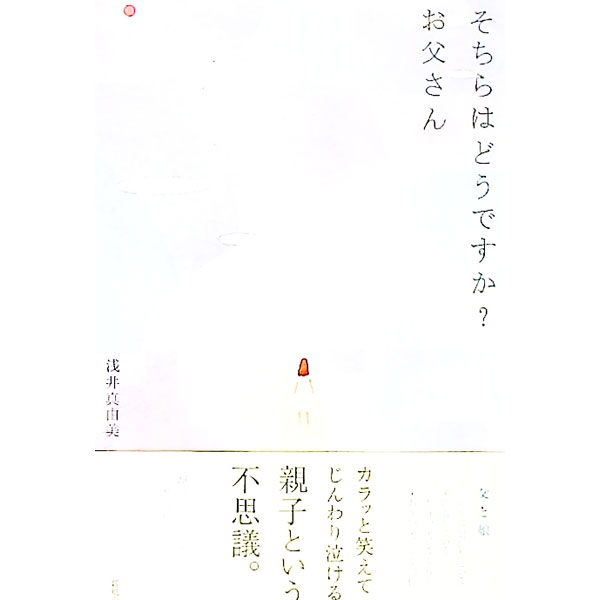 そちらはどうですか？
お父さん
浅井真由美
父と娘
カラッと笑えて
じんわり泣ける
親子という
不思議。